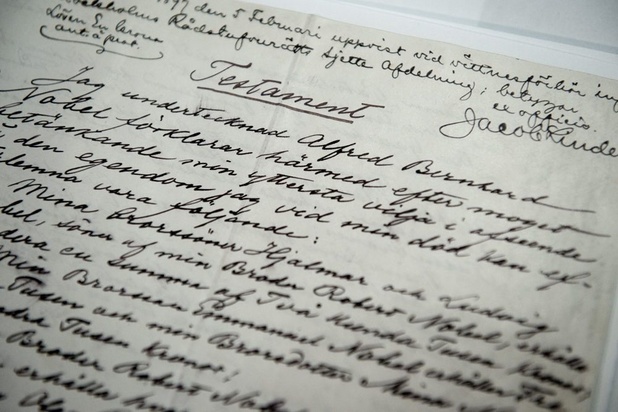 1897 den 5 Februari uppvist vid vittnesförhör inför
Stockholms Rådstufvurätts sjette Afdelning; betygar
Lösen En krona
ex officio.
Jacob Linde
Testament
Jag undertecknad Alfred Bernhard
Nobel förklarar härmed efter moget
betänkande min yttersta vilja i afseende
å den egendom jag vid min död kan ef-
terlemna vara följande:
Mina Brorsöner Hjalmar och Ludvig
Nobel, söner af min Broder Robert Nobel, erhålla
hvardera en summa af Två Hundra Tusen Kronor;
Min Brorson Emmanuel Nobel erhåller Tre
Tusen och min Brorsdotter Mina
Hundra Tusen Kronor;
Broder Robert Nobels
erhålla